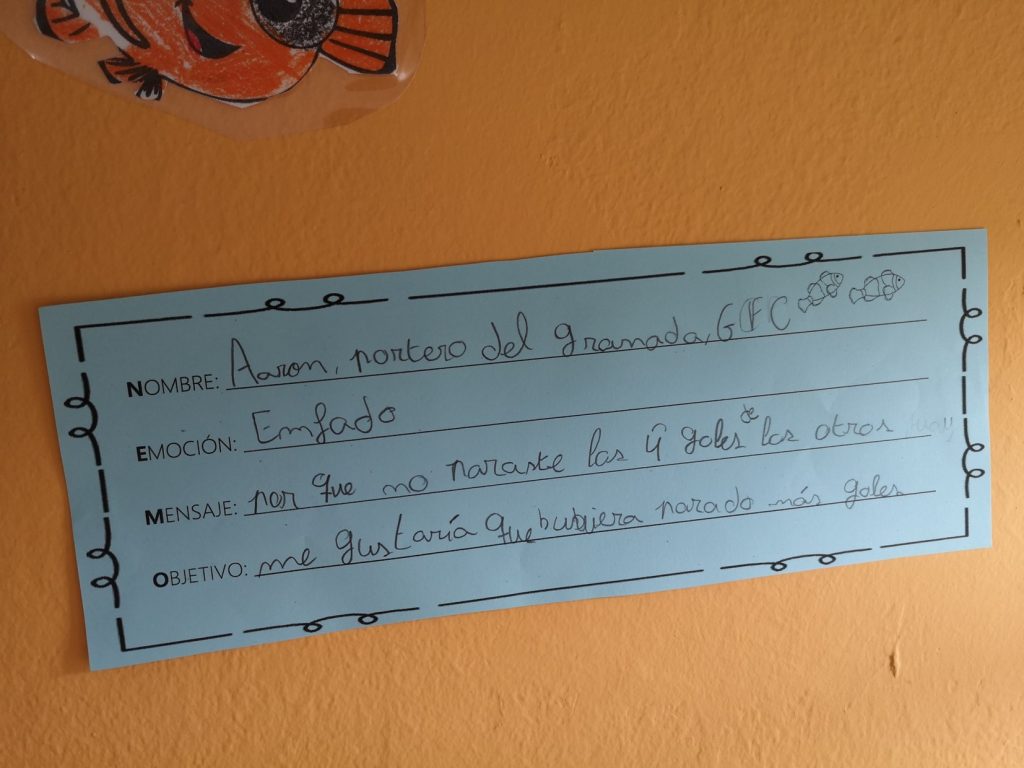 NOMBRE: Aaron, portero del granada, G CF C
EMOCIÓN: Enfado
MENSAJE: por que no paraste las 4 goles de los otros
OBJETIVO: me gustaría que hubiera parado más goles